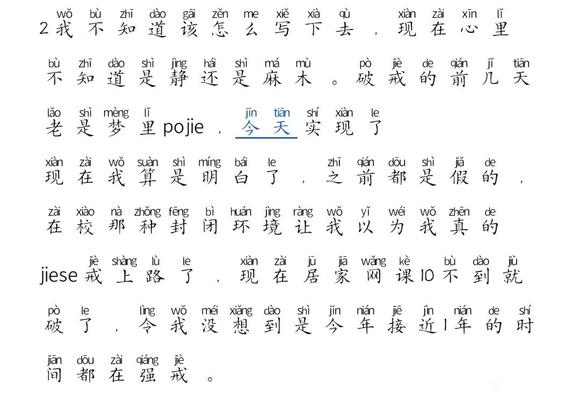 wǒ bù zhī dào gāi zěn me xiě xià qù xiàn zài xīn lǐ
2我不知道该怎么写下去，现在心里
bù zhī dào shì jìng hái shì má mù pò jiè de qián jǐ tiān
不知道是静还是麻木。破戒的前几天
lǎo shì mèng lǐ jīn tiān shí xiàn le
老是梦里pojie，今天实现了
xiàn zài wǒ suàn shì míng bái le zhī qián dōu shì jiǎ de
现在我算是明白了，之前都是假的，
zài xiào nà zhǒng fēng bì huán jìng ràng wǒ yǐ wéi wǒ zhēn de
在校那种封闭环境让我以为我真的
jiè shàng lù le xiàn zài jū jiā wǎng kè bù dào jiù
jiese戒上路了，现在居家网课10不到就
pò le lìng wǒ méi xiǎng dào shì jīn nián jiē jìn nián de shí
破了，令我没想到是今年接近1年的时
jiān dōu zài qiáng jiè
间都在强戒。